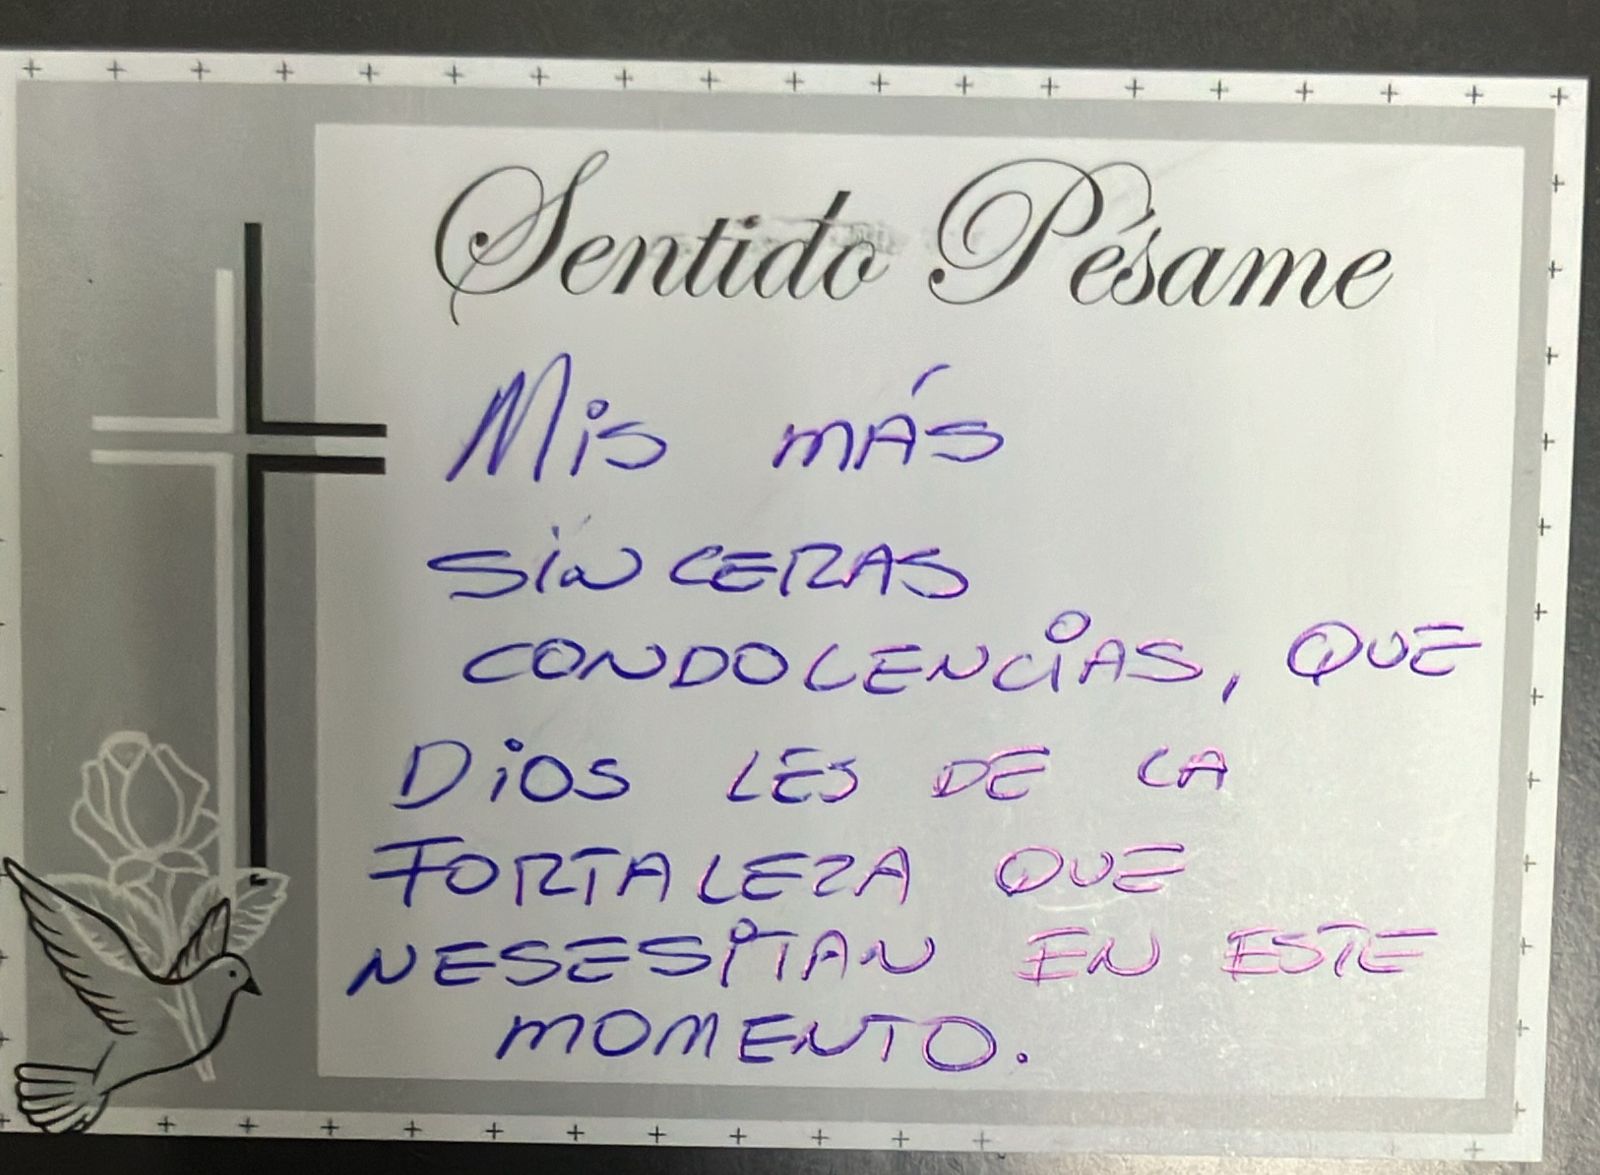 Sentido Pésame
Mis más
sinceras
condolencias, que
Dios les de la
fortaleza que
nesesitan en este
momento.